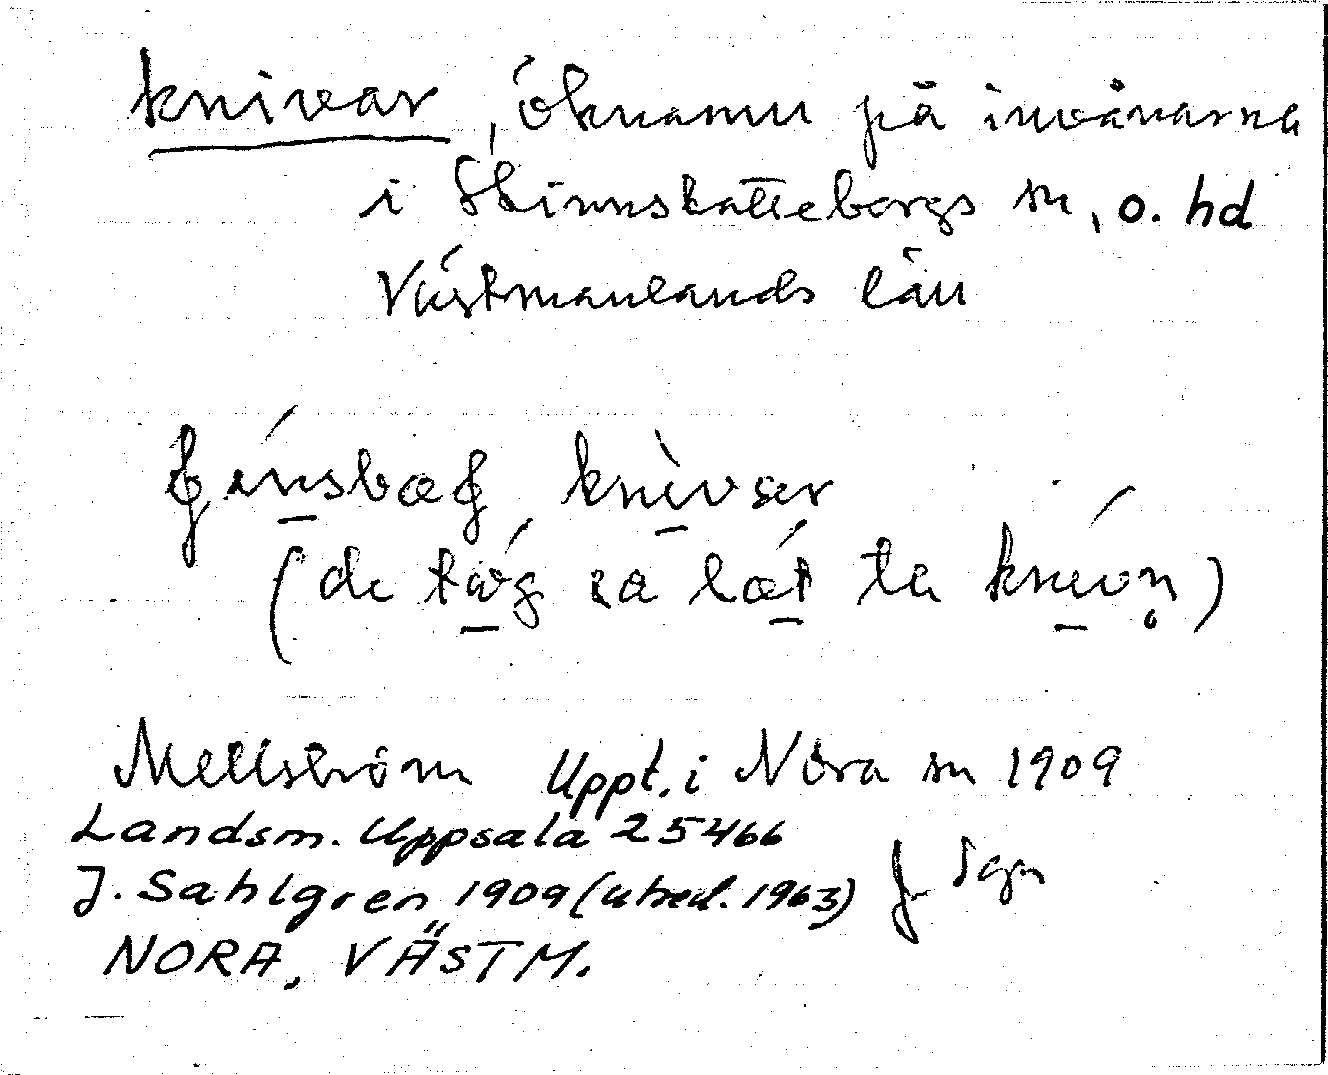 knivar, öknamn på invånarna
i Skinnskattebergs sn, o. hd
Västmanlands län
knivar
(de tóg sa lǽt ta knívn̥)
Mellström Uppt. i Nora sn 1909
Landsm. Uppsala 25466
J. Sahlgren 1909 (utred. 1963) J. Sgn
NORA, VÄSTM.